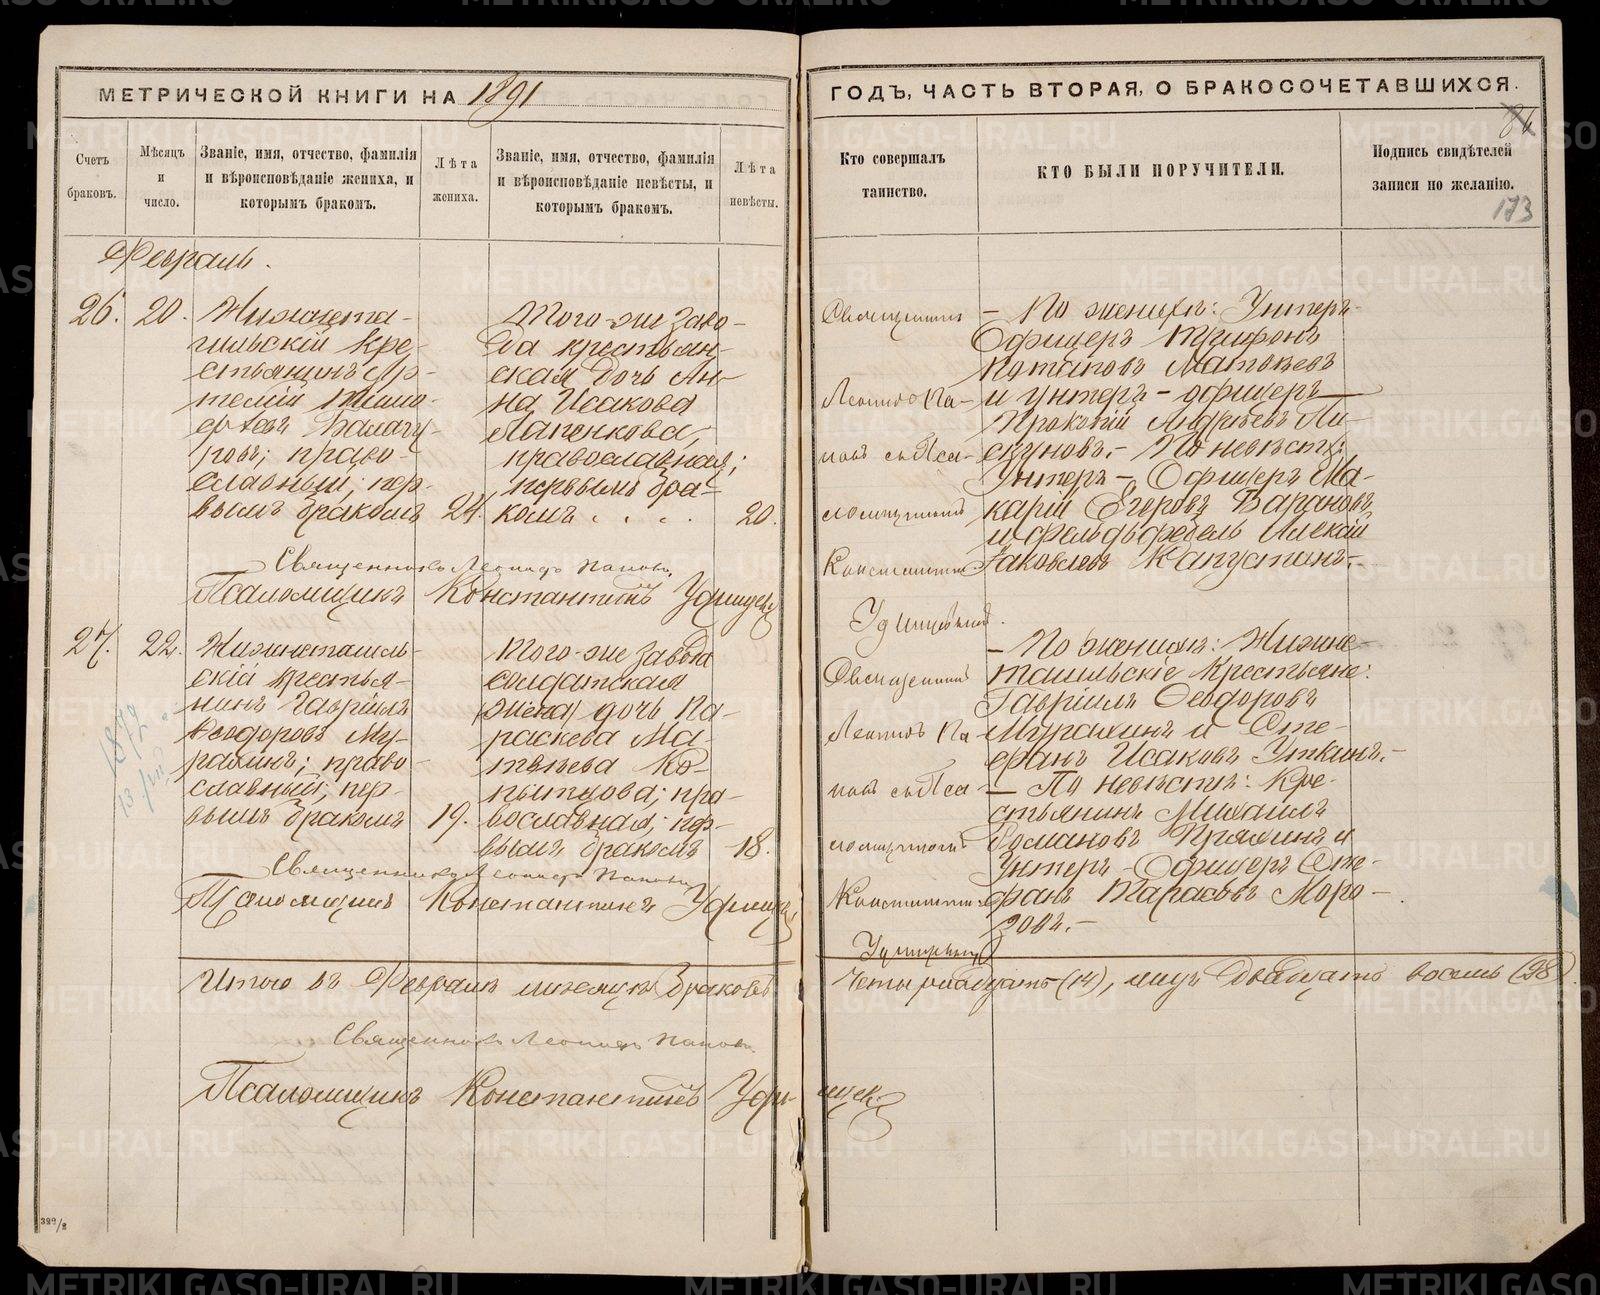 МЕТРИЧЕСКОЙ КНИГИ НА 1891
ГОДЪ, ЧАСТЬ ВТОРАЯ, О БРАКОСОЧЕТАВШИХСЯ.
173
Счетъ браковъ.
Мѣсяцъ и число.
Званіе, имя, отчество, фамилія
и вѣроисповѣданіе жениха, и
которымъ бракомъ.
Лѣта
жениха.
Званіе, имя, отчество, фамилія
и вѣроисповѣданіе невѣсты, и
которымъ бракомъ.
Лѣта
невѣсты.
Кто совершалъ
таинство.
КТО БЫЛИ ПОРУЧИТЕЛИ.
Подпись свидѣтелей
записи по желанію.
Февраль.
26.
20.
Нижнета-
гильскій кре-
стьянинъ Ар-
темій Тимо-
феевъ Балагу-
ровъ; право-
славный; пер-
вымъ бракомъ
24.
Того-же заво-
да крестьян-
ская дочь Ан-
на Исакова
Лапенкова,
православная;
первымъ бра-
комъ . . . .
20.
Священникъ
Леонидъ По-
повъ съ Пса-
ломщикомъ
Константин
- По женихѣ: Унтеръ-
Офицеръ Трифонъ
Потаповъ Матвѣевъ
и унтеръ-офицеръ
Прокопій Андреевъ Пи-
скуновъ.- По невѣстѣ:
Унтеръ-Офицеръ Ма-
карій Егоровъ Барановъ
и фельдфебель Алексій
Іаковлевъ Капустинъ.-
Священникъ Леонидъ Поповъ.
Псаломщикъ Константинъ
27.
22.
Нижнетагиль-
скій крестья-
нинъ Гавріилъ
Ѳеодоровъ Му-
рахинъ; право-
славный; пер-
вымъ бракомъ
19.
Того-же завода
солдатская
(жена) дочь Па-
раскева Ма-
твѣева Ко-
пытова; пра-
вославная; пер-
вымъ бракомъ
18.
Священникъ
Леонидъ По-
повъ съ Пса-
ломщикомъ
Константин
- По женихѣ: Нижне-
тагильскіе крестьяне:
Гавріилъ Ѳеодоровъ
Мурахинъ и Сте-
фанъ Исаковъ Уткинъ.-
- По невѣстѣ: Кре-
стьянинъ Михаилъ
Романовъ Пряхинъ и
Унтеръ-Офицеръ Сте-
фанъ Тарасовъ Моро-
зовъ.-
Священникъ Леонидъ Поповъ
Псаломщикъ Константинъ
1872
13/
Итого въ Февралѣ мѣсяцѣ браковъ
Четырнадцать (14), лицъ двадцать восемь (28).
Священникъ Леонидъ Поповъ.
Псаломщикъ Константинъ
399/2
METRIKI.GASO-URAL.RU